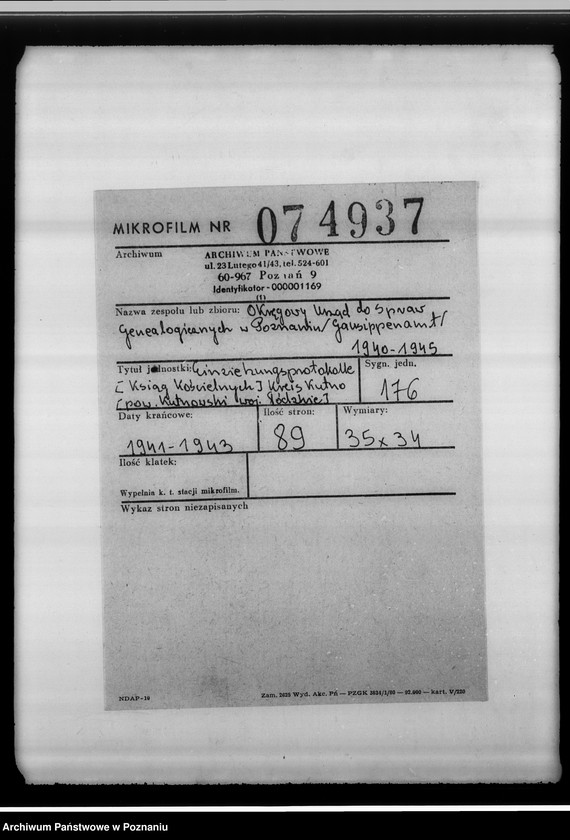 MIKROFILM NR 074937
Archiwum
ARCHIWUM PAŃSTWOWE
ul. 23 Lutego 41/43, tel. 524-601
60-967 Poznań 9
Identyfikator - 000001169
(1)
Nazwa zespołu lub zbioru: Okręgowy Urząd do Spraw
Genealogicznych w Poznaniu /Gausippenamt/
1940-1945
Tytuł jednostki: Einziehungsprotokolle
[Ksiąg Kościelnych] Kreis Kutno
[pow. Kutnowski woj. łódzkie]
Sygn. jedn.
176
Daty krańcowe:
1941-1943
Ilość stron:
89
Wymiary:
35x34
Ilość klatek:
Wypełnia k. t. stacji mikrofilm.
Wykaz stron niezapisanych
NDAP-10
Zam. 2635 Wyd. Akc. Pń — PZGK 3834/1/88 — 92.000 — kart. V/220
Archiwum Państwowe w Poznaniu